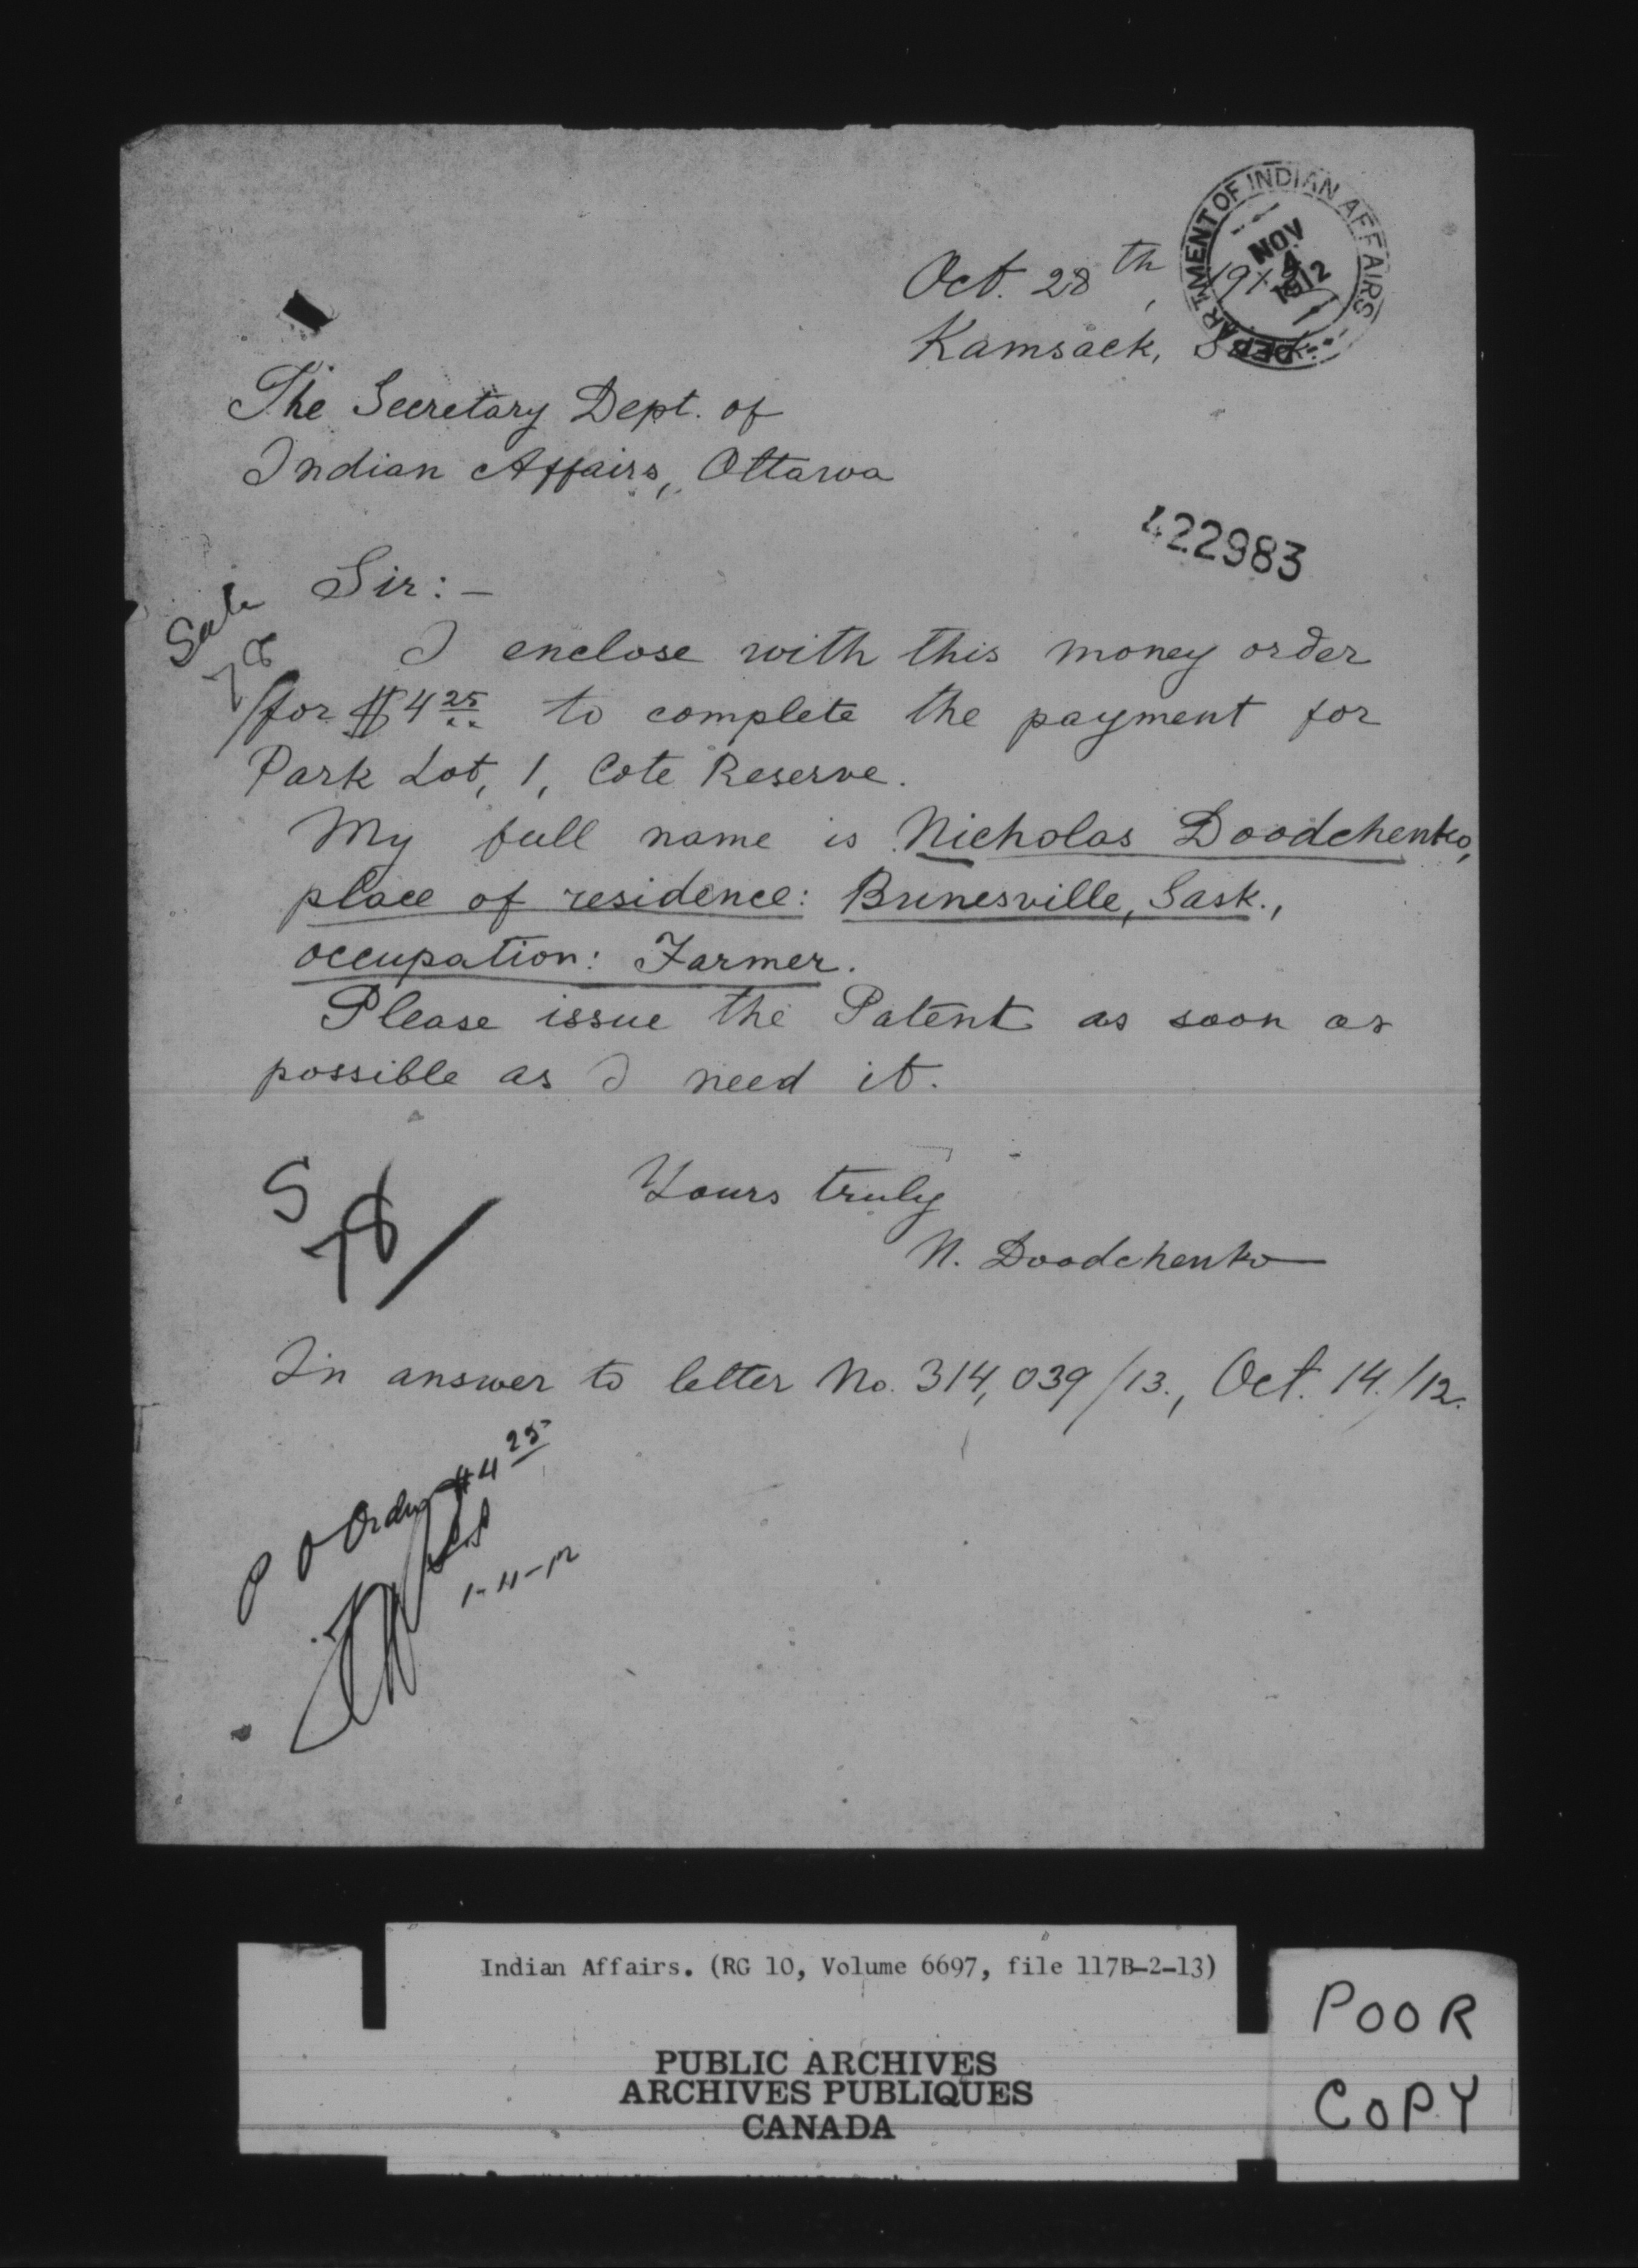 DEPARTMENT OF INDIAN AFFAIRS
NOV
4
1912
Oct. 28th, 1912
Kamsack, Sask.
The Secretary Dept. of
Indian Affairs, Ottawa
422983
Sale
78
Sir:—
I enclose with this money order
for $4 25 to complete the payment for
Park Lot, 1, Cote Reserve.
My full name is Nicholas Doodchenko,
place of residence: Brunesville, Sask.,
occupation: Farmer.
Please issue the Patent as soon as
possible as I need it.
S
78/
Yours truly
N. Doodchenko
In answer to letter No. 314,039/13., Oct. 14./12.
P O Order $4 25
1-11-12
Indian Affairs. (RG 10, Volume 6697, file 117B-2-13)
PUBLIC ARCHIVES
ARCHIVES PUBLIQUES
CANADA
POOR
COPY